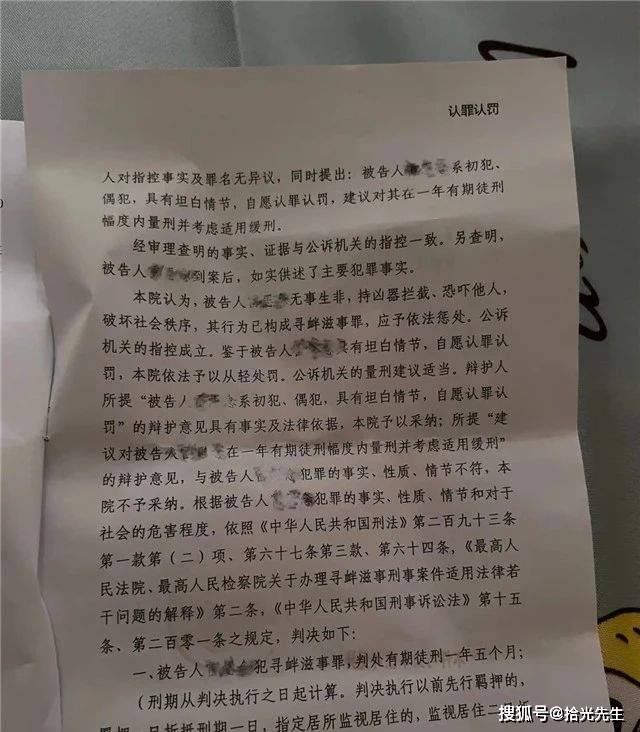 认罪认罚
人对指控事实及罪名无异议，同时提出：被告人系初犯、
偶犯，具有坦白情节，自愿认罪认罚，建议对其在一年有期徒刑
幅度内量刑并考虑适用缓刑。
经审理查明的事实、证据与公诉机关的指控一致。另查明，
被告人到案后，如实供述了主要犯罪事实。
本院认为，被告人无事生非，持凶器拦截、恐吓他人，
破坏社会秩序，其行为已构成寻衅滋事罪，应予依法惩处。公诉
机关的指控成立。鉴于被告人具有坦白情节，自愿认罪认
罚，本院依法予以从轻处罚。公诉机关的量刑建议适当。辩护人
所提“被告人系初犯、偶犯，具有坦白情节，自愿认罪认
罚”的辩护意见具有事实及法律依据，本院予以采纳；所提“建
议对被告人在一年有期徒刑幅度内量刑并考虑适用缓刑”
的辩护意见，与被告人犯罪的事实、性质、情节不符，本
院不予采纳。根据被告人犯罪的事实、性质、情节和对于
社会的危害程度，依照《中华人民共和国刑法》第二百九十三条
第一款第（二）项、第六十七条第三款、第六十四条，《最高人
民法院、最高人民检察院关于办理寻衅滋事刑事案件适用法律若
干问题的解释》第二条，《中华人民共和国刑事诉讼法》第十五
条、第二百零一条之规定，判决如下：
一、被告人犯寻衅滋事罪，判处有期徒刑一年五个月；
（刑期从判决执行之日起计算。判决执行以前先行羁押的，
日折抵刑期一日，指定居所监视居住的，监视居住二
搜狐号@拾光先生